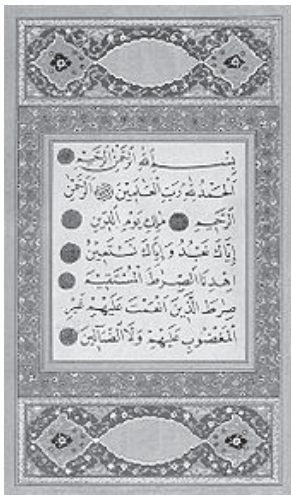 بِسْمِ اللَّهِ الرَّحْمَٰنِ الرَّحِيمِ
الْحَمْدُ لِلَّهِ رَبِّ الْعَٰلَمِينَ الرَّحْمَٰنِ
الرَّحِيمِ مَٰلِكِ يَوْمِ الدِّينِ
إِيَّاكَ نَعْبُدُ وَإِيَّاكَ نَسْتَعِينُ
اهْدِنَا الصِّرَٰطَ الْمُسْتَقِيمَ
صِرَٰطَ الَّذِينَ أَنْعَمْتَ عَلَيْهِمْ غَيْرِ
الْمَغْضُوبِ عَلَيْهِمْ وَلَا الضَّالِّينَ